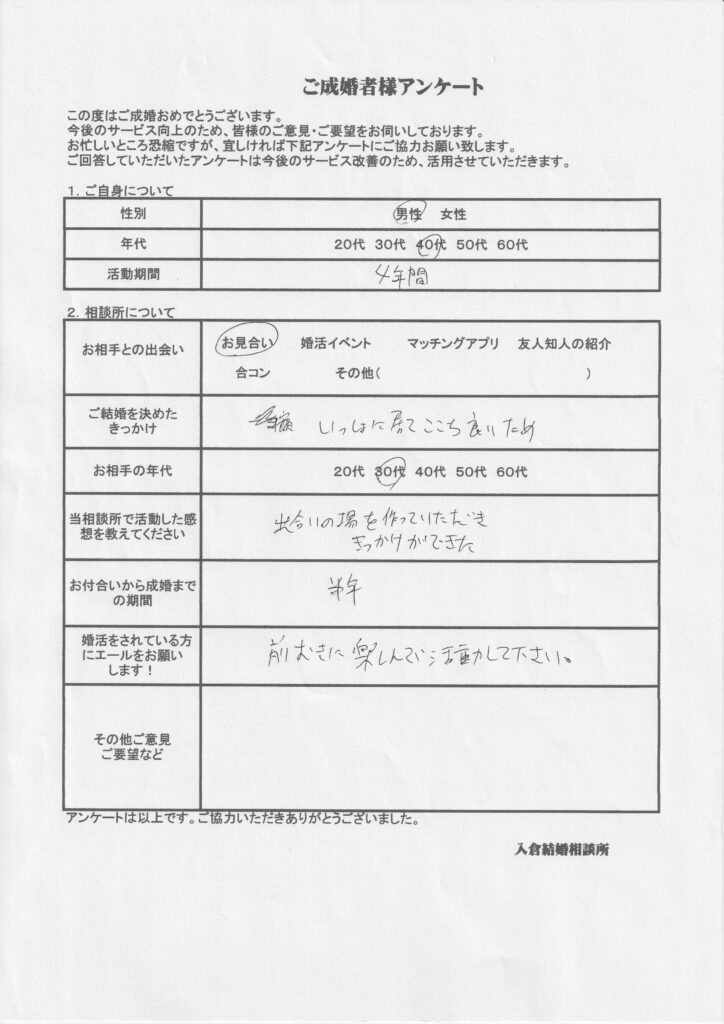 ご成婚者様アンケート
この度はご成婚おめでとうございます。
今後のサービス向上のため、皆様のご意見・ご要望をお伺いしております。
お忙しいところ恐縮ですが、宜しければ下記アンケートにご協力お願い致します。
ご回答していただいたアンケートは今後のサービス改善のため、活用させていただきます。
1. ご自身について
性別 男性 女性
年代 20代 30代 40代 50代 60代
活動期間 4年間
2. 相談所について
お相手との出会い
お見合い 婚活イベント マッチングアプリ 友人知人の紹介
合コン その他( )
ご結婚を決めた
きっかけ
いっしょに居てここち良いため
お相手の年代 20代 30代 40代 50代 60代
当相談所で活動した感
想を教えてください
出合いの場を作っていただき
きっかけができた
お付合いから成婚まで
の期間
半年
婚活をされている方
にエールをお願い
します!
前むきに楽しんで活動して下さい。
その他ご意見
ご要望など
アンケートは以上です。ご協力いただきありがとうございました。
入倉結婚相談所